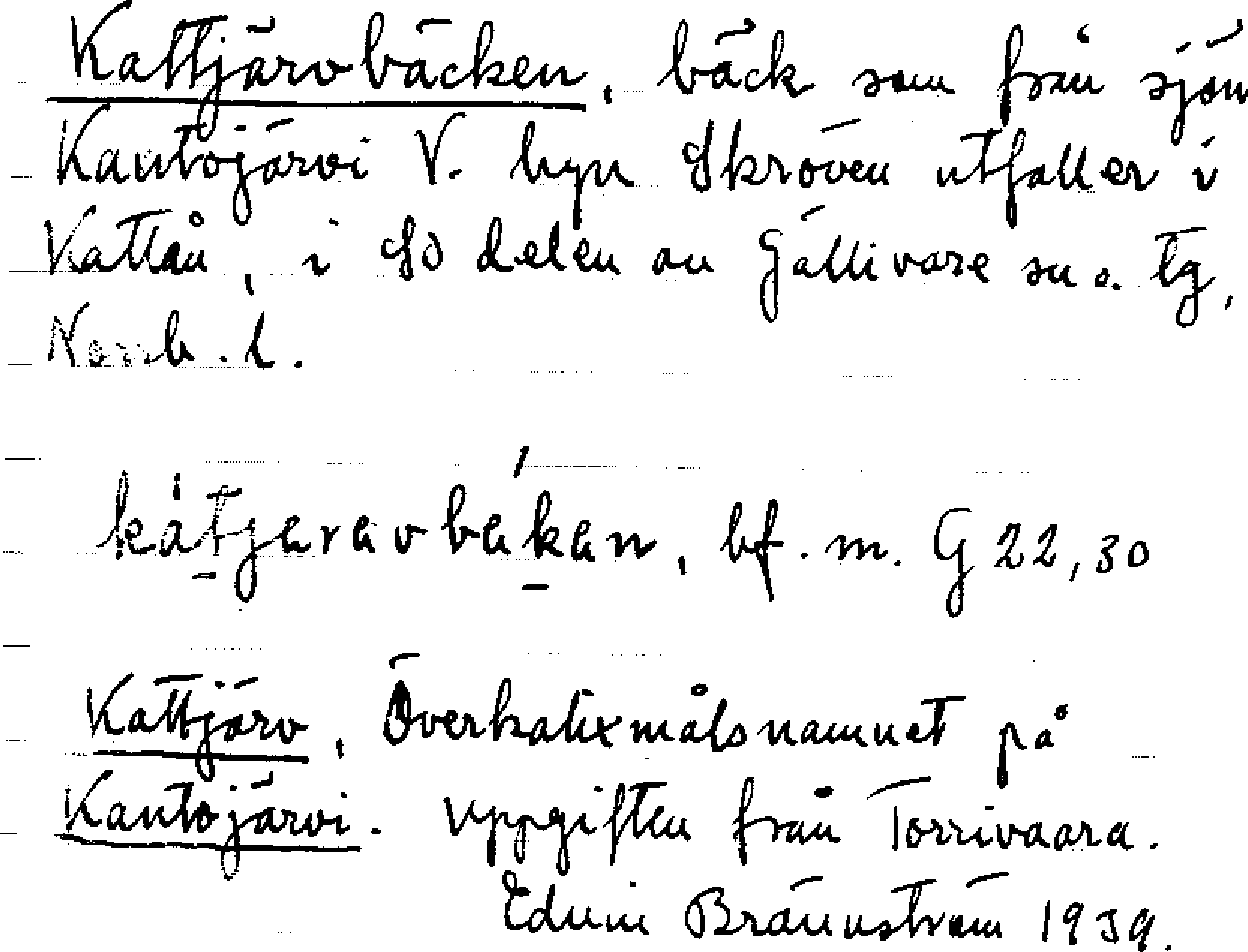 Kattjärvbäcken, bäck som från sjön
Kantojärvi V. byn Skröven utfaller i
Kattån, i SÖ delen av Gällivare sn o. tg,
Norrb. l.
kátjaravbäkan, bf. m. G 22,30
Kattjärv, Överkalixmålsnamnet på
Kantojärvi. Uppgiften från Torrivaara.
Edvin Brännström 1939.